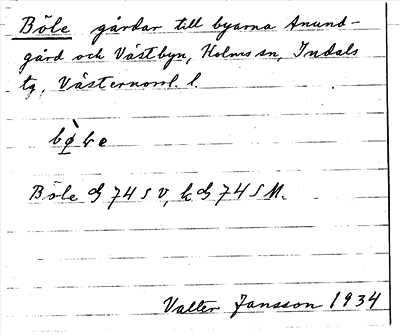 Böle gårdar till byarna Anund-
gård och Västbyn, Holms sn, Indals
tg, Västernorrl. l.
Böle G 74 S V, k G 74 S M.
Valter Jansson 1934